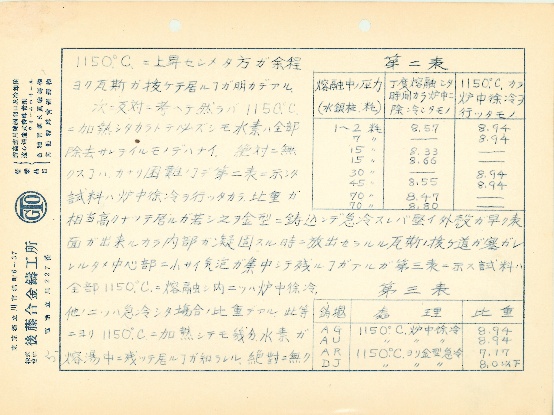 1150°C.ニ上昇セシメタ方ガ余程
ヨク瓦斯ガ抜ケテ居ルヿガ明カデアル
次ニ反対ニ考ヘテ然ラバ1150°C.
ニ加熱シタカラトテ必ズシモ水素ハ全部
除去サレテイルモノデハナイ。絶対ニ無
クスヿハカナリ困難ナヿデ第二表ニ示シタ
試料ハ炉中徐冷ヲ行ッタカラ、比重ガ
相当高クナッテ居ルガ若シ之ヲ金型ニ鋳込ンデ急冷スレバ堅イ外殻ガ早ク表
面ガ出来ルカラ内部ガ凝固スル時ニ放出セラルル瓦斯ノ抜ケ道ガ塞ガレ
ルタメ中心部ニ小サイ気泡ガ集中シテ残ルヿガアルガ第三表ニ示ス試料ハ
全部1150°C.ニ熔融シ内ニツハ炉中徐冷、
他ノニツハ急冷シタ場合ノ比重デアル 此等
ニヨリ1150°C.ニ加熱シテモ残分水素ガ
熔湯中ニ残ッテ居ルヿガ知ラレル、絶対ニ無ク
第二表
熔融中ノ圧力(水銀柱 粍)
丁度熔融シタ時期カラ炉中ニ除冷シタモノ
1150°C.カラ炉中徐冷ヲ行ッタモノ
1〜2 粍 8.57 8.94
7 〃 —— 8.94
15 〃 8.33 ——
15 〃 8.66 ——
30 〃 —— 8.94
45 〃 8.55 8.94
70 〃 8.47 ——
70 〃 8.80 ——
第三表
鋳塊 処理 比重
AG 1150°C.炉中徐冷 8.94
AU 〃 〃 〃 8.94
AR 1150°C.ヨリ金型急冷 7.17
DJ 〃 〃 〃 8.0以下
GTO
後藤合金鑄工所